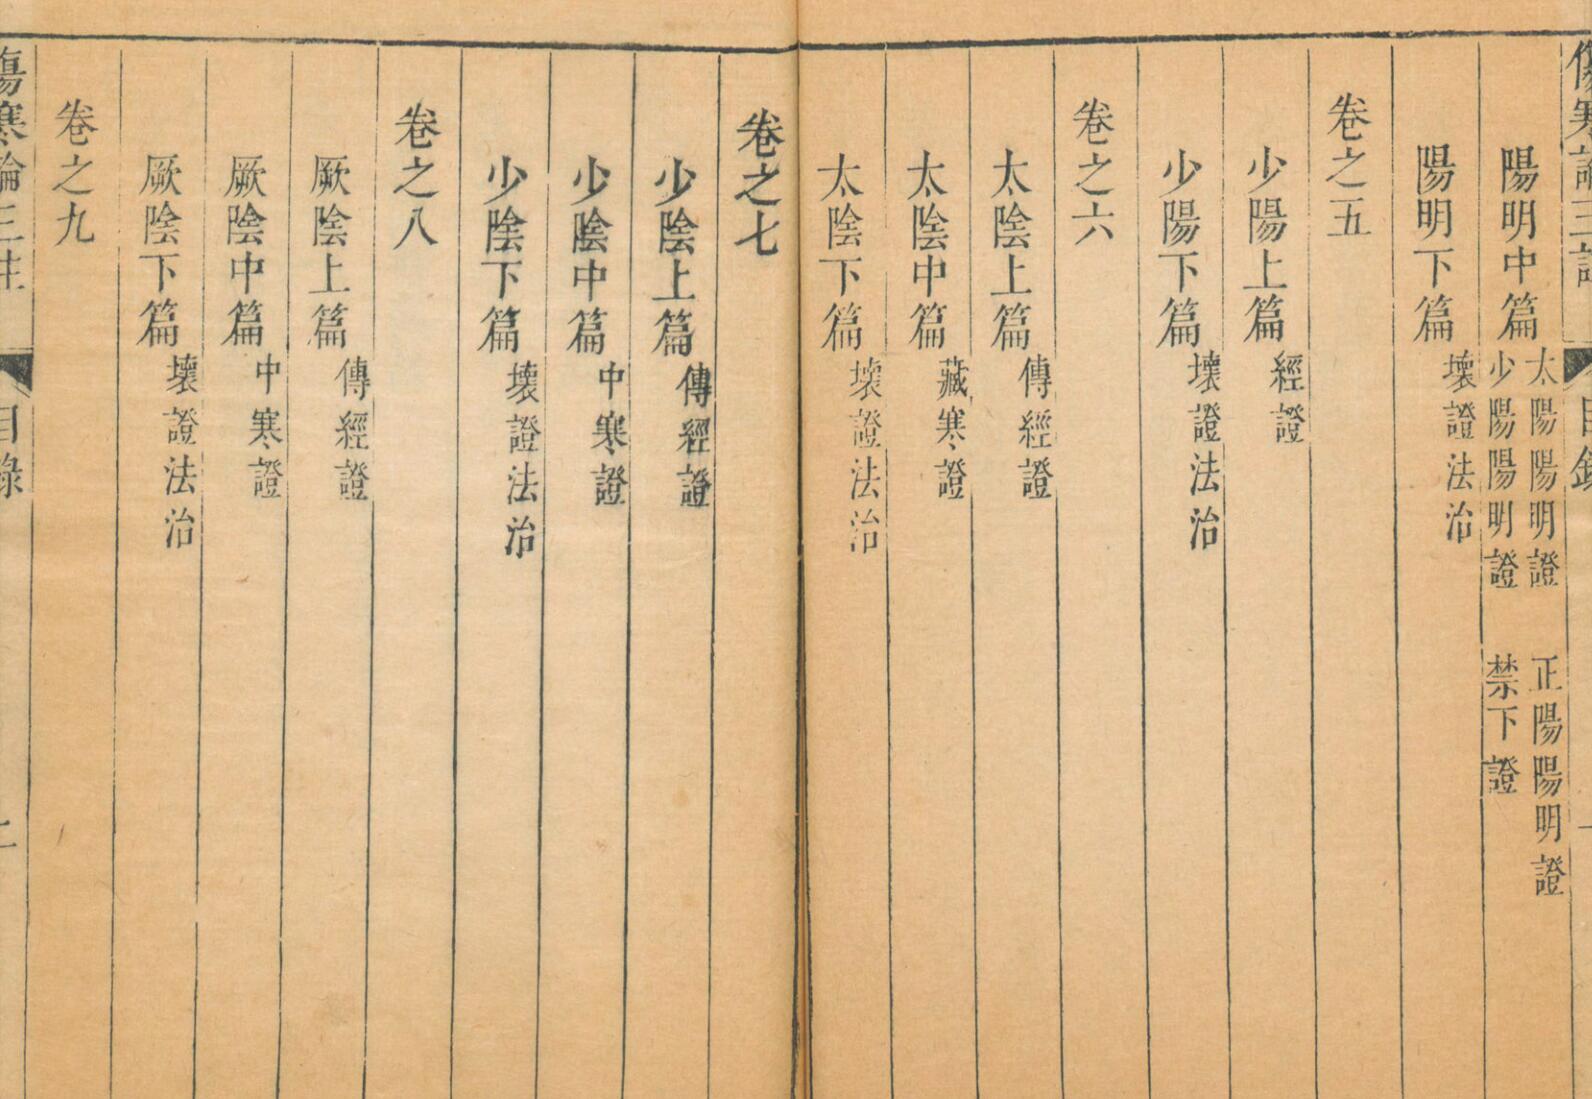 傷寒論三註 目錄 一
陽明中篇 太陽陽明證 正陽陽明證 少陽陽明證 禁下證
陽明下篇 壞證法治
卷之五
少陽上篇 經證
少陽下篇 壞證法治
卷之六
太陰上篇 傳經證
太陰中篇 藏寒證
太陰下篇 壞證法治
卷之七
少陰上篇 傳經證
少陰中篇 中寒證
少陰下篇 壞證法治
卷之八
厥陰上篇 傳經證
厥陰中篇 中寒證
厥陰下篇 壞證法治
卷之九
傷寒論三註 目錄 二